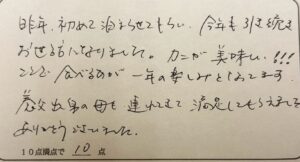 昨年、初めて泊まらせてもらい、今年も引き続き
お世話になりました。カニが美味しい!!!
ここで食べるのが一年の楽しみとなってます。
出身の母も連れてきて満足してもらえて
ありがとうございました。
10点満点で 10 点